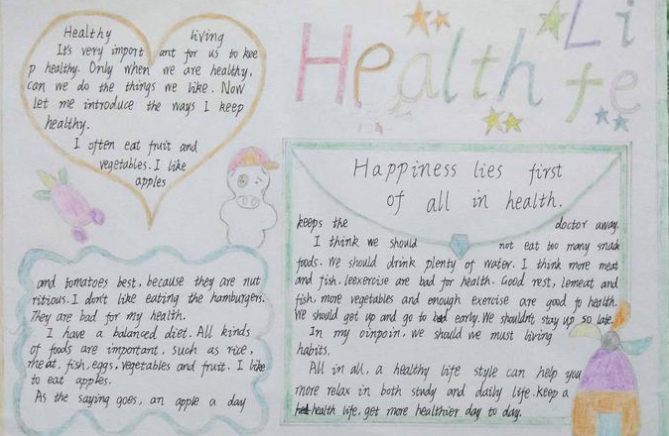 Health Life
Healthy living
It's very import ant for us to kee
p healthy. Only when we are healthy,
can we do the things we like. Now
let me introduce the ways I keep
healthy.
I often eat fruit and
vegetables. I like
apples
and tomatoes best, because they are nut
ritious. I don't like eating the hamburgers.
They are bad for my health.
I have a balanced diet. All kinds
of foods are important, such as rize,
meat, fish, eggs, vegetables and fruit. I like
to eat apples.
As the saying goes, an apple a day
Happiness lies first
of all in health.
keeps the doctor away.
I think we should not eat too many snack
foods. We should drink plenty of water. I think more meat
and fish, leexercise are bad for health. Good rest, lemeat and
fish, more vegetables and enough exercise are good to health.
We should get up and go to bed early. We shouldn't stay up so late.
In my oinpoin, we should we must living
habits.
All in all, a healthy life style can help you
more relax in both study and daily life. keep a
health life, get more healthier day to day.